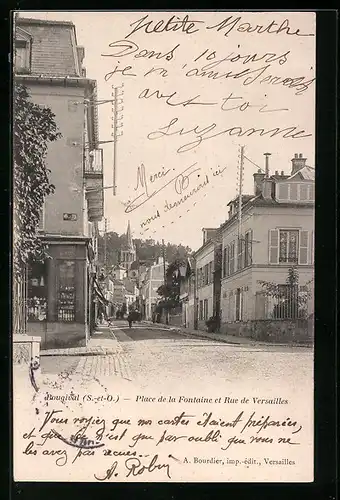 Petite Marthe
Dans 10 jours
je m'amuserai
avec toi
Suzanne
Merci
nous demeurons ici
Bougival (S.-et-O.) — Place de la Fontaine et Rue de Versailles
Vous voyez que nos cartes étaient préparées,
et que ce n'est que par oubli que vous ne
les avez pas reçues.
A. Robin
A. Bourdier, imp.-édit., Versailles